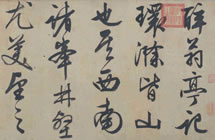 醉翁亭記
環滁皆山
也其西南
諸峯林壑
尤美望之